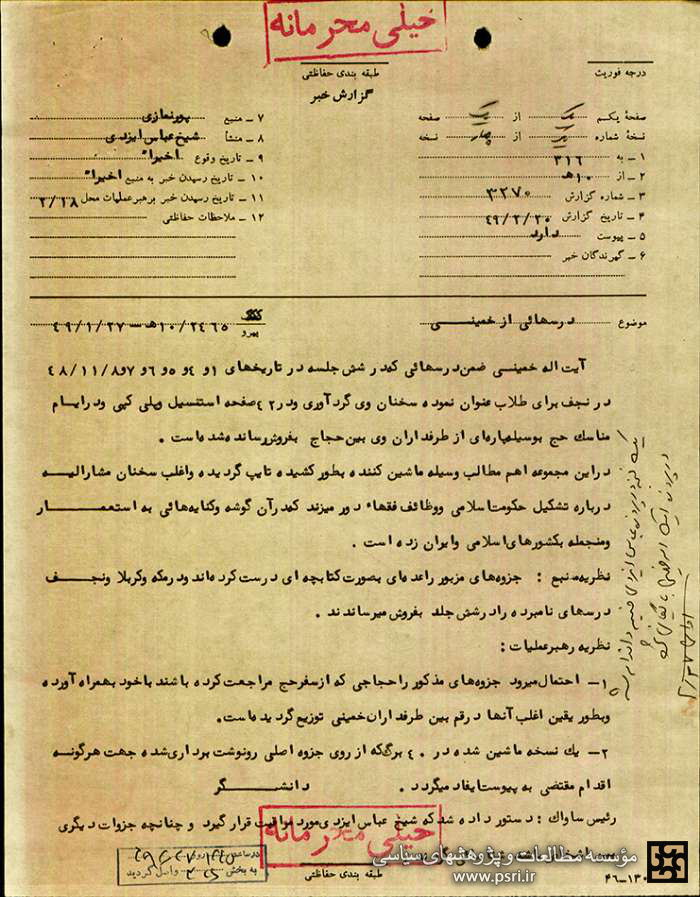 خیلی محرمانه
طبقه بندی حفاظتی
درجه فوریت
گزارش خبر
صفحهٔ یکم یک از یک صفحه
نسخهٔ شماره یک از چهار نسخه
۱ – به ۳۱۶
۲ – از ۱۰ هـ
۳ – شماره گزارش ۳۲۷۰
۴ – تاریخ گزارش ۴۹/۲/۲۰
۵ – پیوست دارد
۶ – گیرندگان خبر
۷ – منبع پورنمازی
۸ – منشأ شیخ عباس ایزدی
۹ – تاریخ وقوع اخیرا"
۱۰ – تاریخ رسیدن خبر به منبع اخیرا"
۱۱ – تاریخ رسیدن خبر برهبر عملیات محل ۲/۱۸
۱۲ – ملاحظات حفاظتی
موضوع درسهائی از خمینــی
پیرو ۱۰/۲۴۶۵هـ – ۴۹/۱/۲۷
آیت اله خمینی ضمن درسهائی که در شش جلسه در تاریخهای ۱و ۴و ۵و ۶و ۷و ۴۸/۱۱/۸
در نجف برای طلاب عنوان نموده سخنان وی گردآوری ودر ۲۴ صفحه استنسیل وپلی کپی ودر ایام
مناسك حج بوسیله پاره‌ای از طرفداران وی بین حجاج بفروش رسانده شده است .
دراین مجموعه اهم مطالب وسیله ماشین کننده بطور کشیده تایپ گردیده واغلب سخنان مشارالیه
درباره تشکیل حکومت اسلامی ووظائف فقهاء دور میزند که در آن گوشه وکنایه‌هائی به استعمــار
ومنجمله بکشورهای اسلامی وایران زده است .
نظریه منبع : جزوه‌های مزبور را عده‌ای بصورت کتابچه ای درست کرده‌اند ودر مکه وکربلا ونجف
درسهای نامبرده را در شش جلد بفروش میرساندند .
نظریه رهبر عملیات :
۱– احتمال میرود جزوه‌های مذکور را حجاجی که از سفر حج مراجعت کرده باشند باخود بهمراه آورده
وبطور یقین اغلب آنها در قم بین طرفداران خمینی توزیع گردیده است.
۲– یك نسخه ماشین شده در ۴۰ برگ که از روی جزوه اصلی رونوشت برداری شده جهت هرگونه
اقدام مقتضی به پیوست ایفاد میگردد . دانشــگر
رئیس ساواك : دستور داده شد که شیخ عباس ایزدی مورد مراقبت قرار گیرد و چنانچه جزوات دیگری
خیلی محرمانه
طبقه بندی حفاظتی
در ساعت روز
به بخش واصل گردید
مؤسسه مطالعات و پژوهشهای سیاسی
www.psri.ir
۴۶–۱۳۰